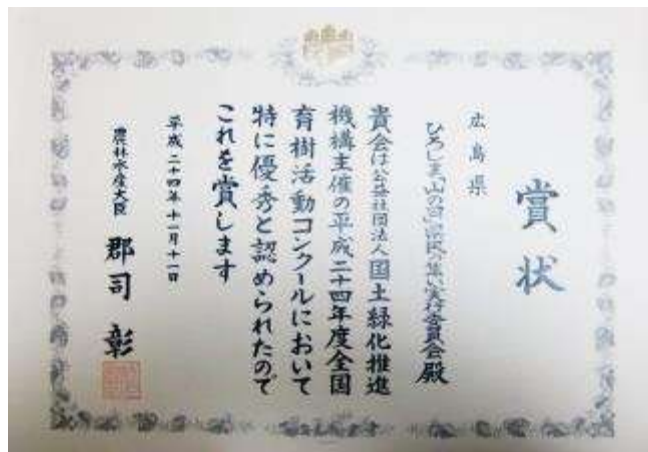 賞状
広島県
ひろしま「山の日」県民の集い実行委員会殿
貴会は公益社団法人国土緑化推進
機構主催の平成二十四年度全国
育樹活動コンクールにおいて
特に優秀と認められたので
これを賞します
平成二十四年十一月十一日
農林水産大臣 郡司 彰